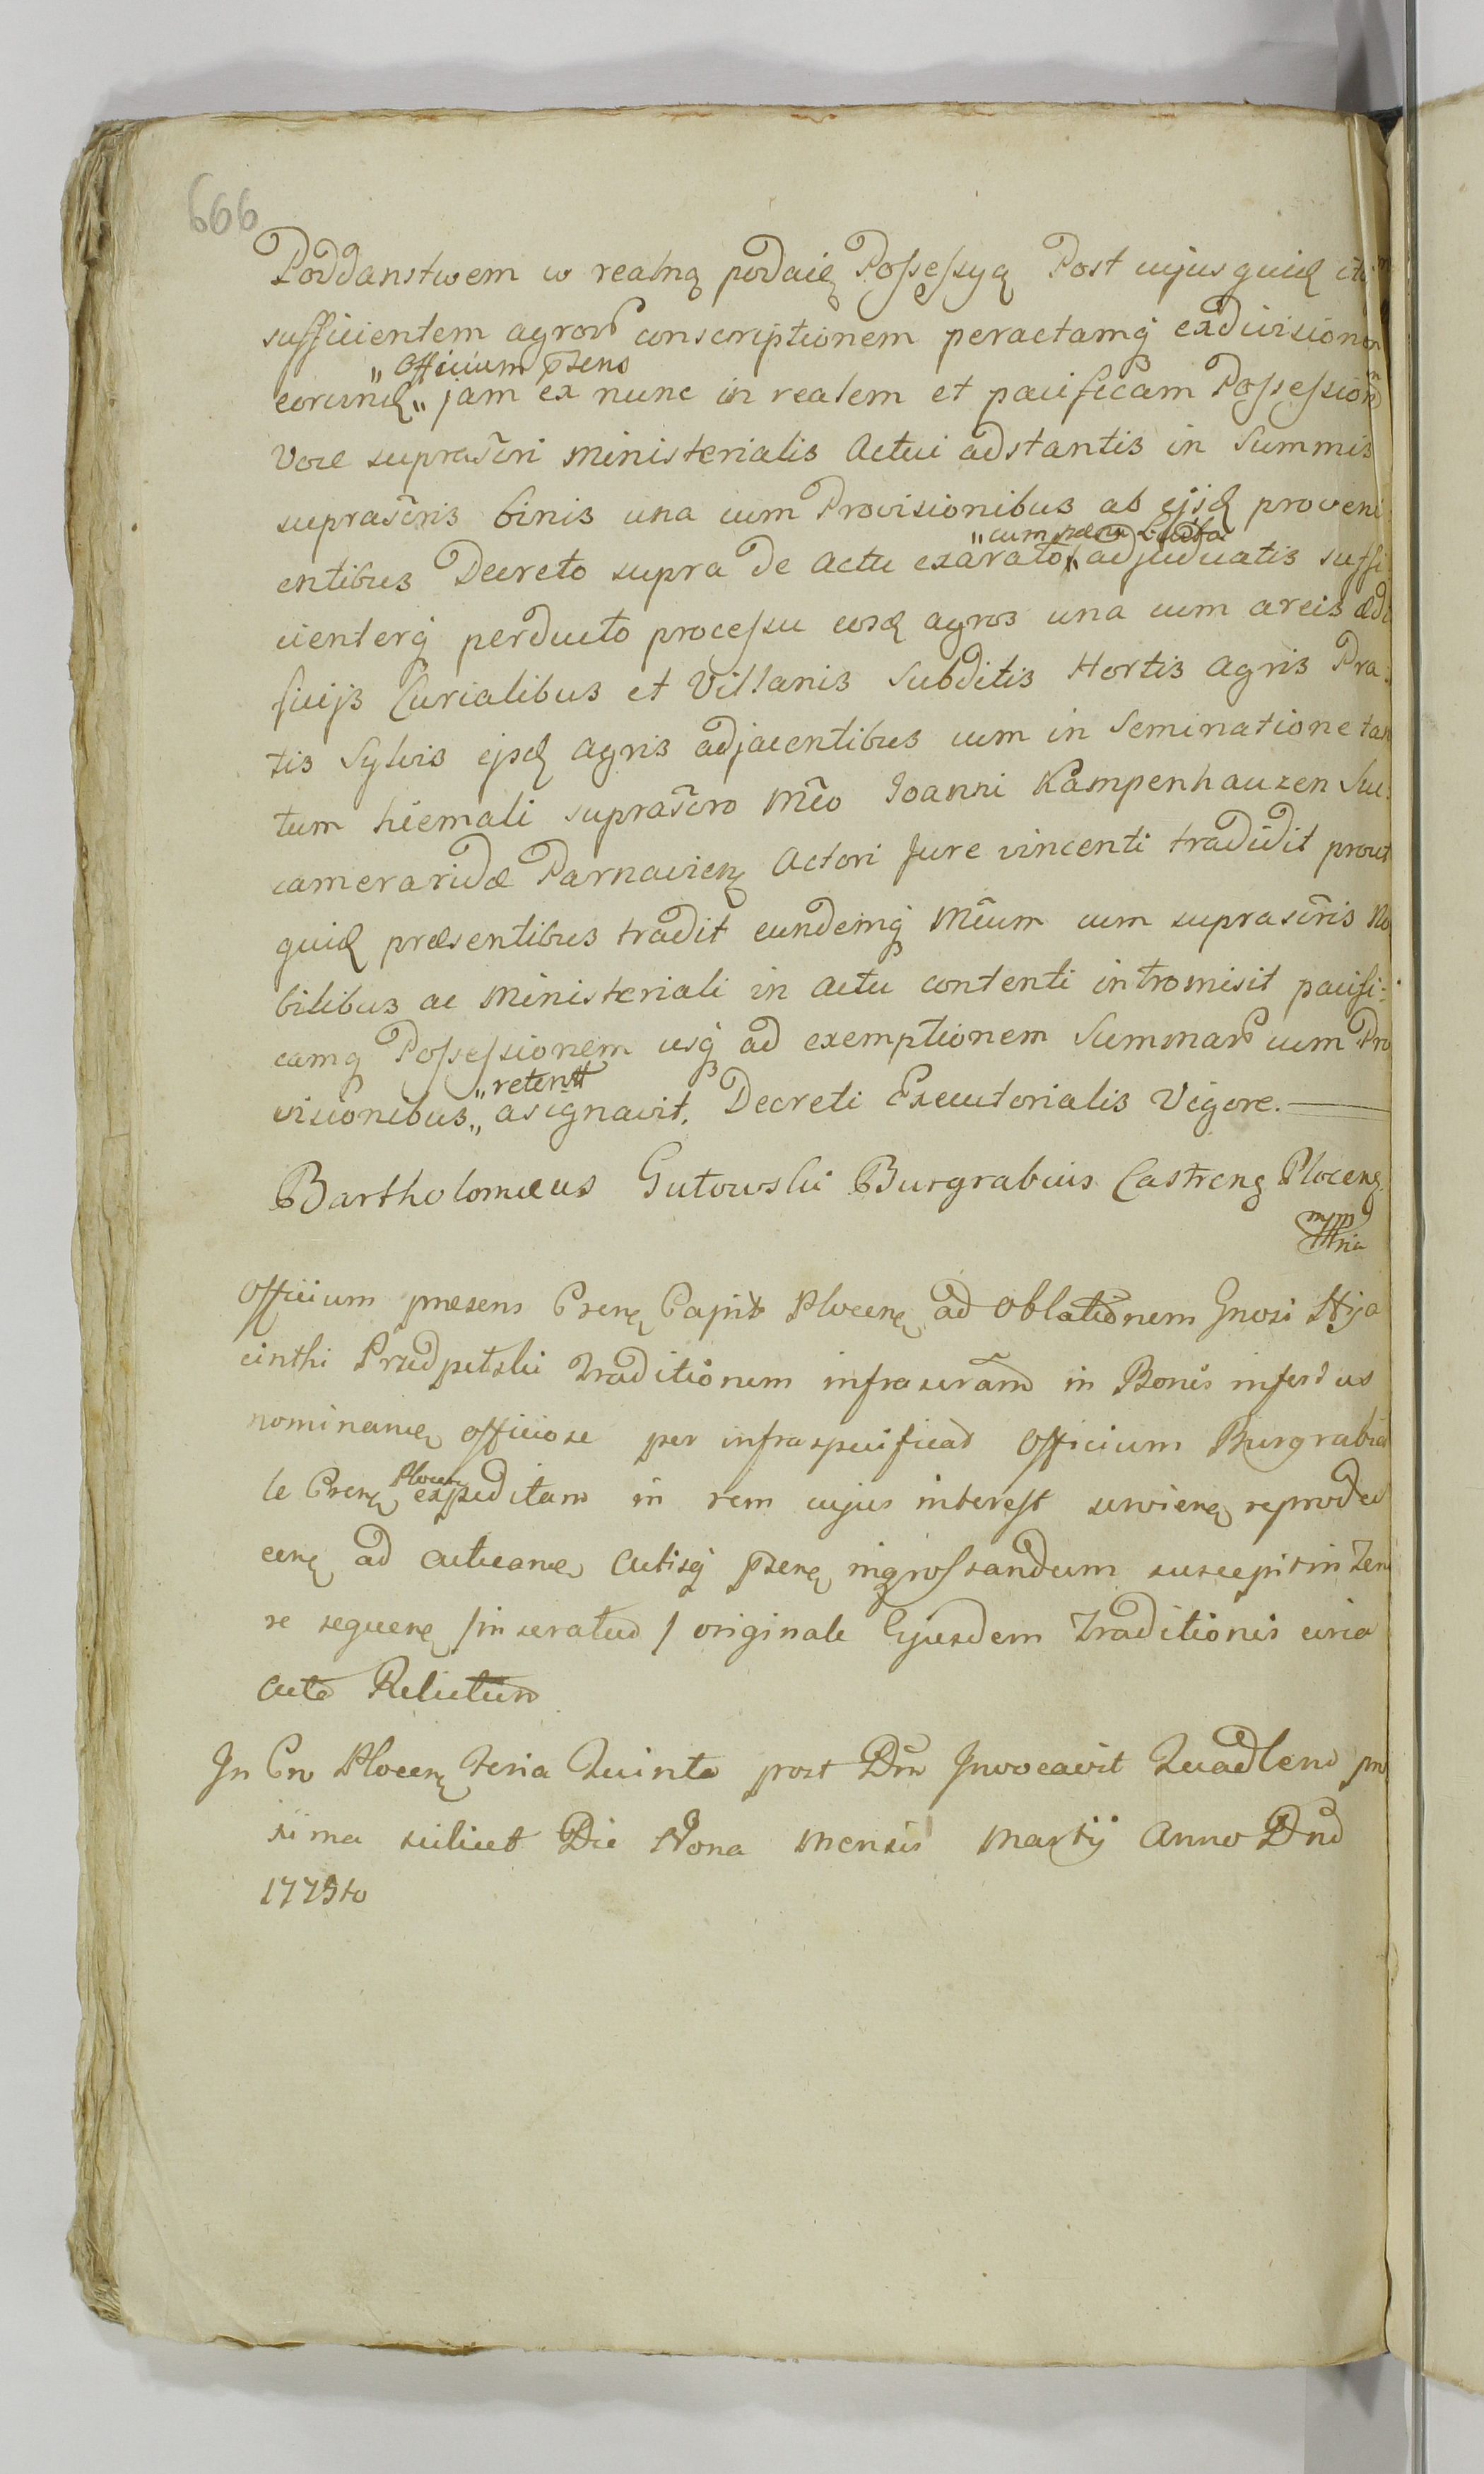 666
Poddanstwem w realną podaię Possessyą Post cujus quid
sufficientem agror conscriptionem peractamq exdivisionem
"Officium psens
eorund" jam ex nunc in realem et pacificam Possession
Voce suprascri Ministerialis Actui adstantis in Summis
suprascris binis una cum Provisionibus ab ejsd proveni
"cum
entibus Decreto supra de actu exarato" adjudicatis suffi
cienterq perducto processu eosd agros una cum areis ædi
ficijs Curialibus et Villanis Subditis Hortis agris Pra:
tis Sylvis ejsd agris adjacentibus cum in Seminatione tan
tum hiemali suprascro Mco Joanni Kampenhauzen Suc:
cameraridæ Parnavien Actori Jure vincenti tradidit prout
quid præsentibus tradit eundemq Mcum cum suprascris No
bilibus ac Ministeriali in actu contenti intromisit pacifi:
camq Possessionem usq ad exemptionem Summar cum Pro
"retent
visionibus" asignavit. Decreti Executorialis Vigore.
Bartholomæus Gutowski Burgrabius Castren Plocen
mpp
Officium præsens Cren Capit Plocen ad Oblationem Gnosi Hya
cinthi Przedpełski Traditionem infrascram in Bonis infert us
nominan officiose per infraspecificat Officium Burgrabia
Plocen
le Cren expeditam in rem cujus interest servien reprodu
cen ad actican Actisq psen ingrossandum suscepit in Teno
re sequen /in seratud / originale Ejusdem Traditionis circa
acta Relictum
In Cro Plocen Feria Quinta post Dm Invocavit Quadlem pro
xima scilicet Die Nona Mensis Martij Anno Dni
1775to